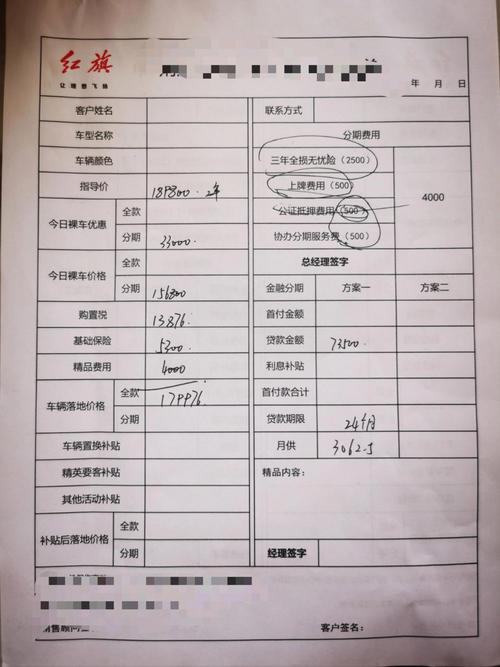 红旗
让理想飞扬
年 月 日
客户姓名 联系方式
车型名称 分期费用
车辆颜色 三年全损无忧险（2500） 4000
指导价 189800. 上牌费用（500）
今日裸车优惠 全款 公证抵押费用（500）
分期 33000. 协办分期服务费（500）
今日裸车价格 全款 总经理签字
分期 156800 金融分期 方案一 方案二
购置税 13876. 首付金额
基础保险 5300. 贷款金额 73500.
精品费用 4000 利息补贴
车辆落地价格 全款 179976 首付款合计
分期 贷款期限 24个月
车辆置换补贴 月供 3062.5
精英要客补贴 精品内容：
其他活动补贴
补贴后落地价格 全款
分期 经理签字
销售顾问签
客户签名：